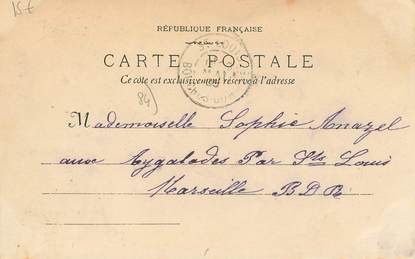 15€
RÉPUBLIQUE FRANÇAISE
CARTE POSTALE
Ce côté est exclusivement réservé à l'adresse
84
Mademoiselle Sophie Amazel
aux Aygalades Par Sts Louis
Marseille B.D.R